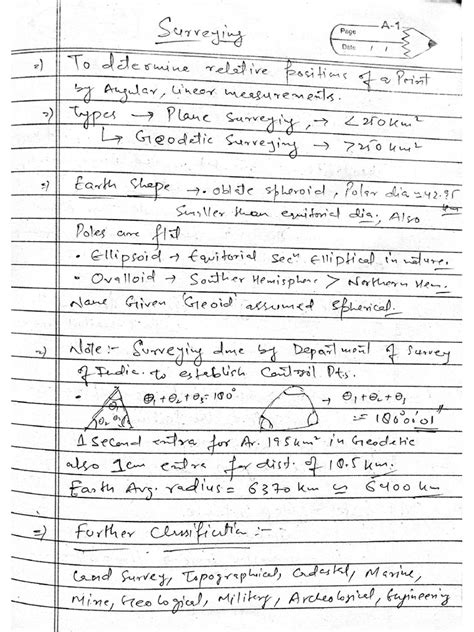 Surveying
A-1
Page
Date / /
=) To determine relative positions of a Point
by Angular, Linear measurements.
=) Types → Plane Surveying, → < 250 km²
↳ Geodetic Surveying → > 250 km²
=) Earth Shape → . oblate spheroid, Polar dia = 42.95 km
Smaller than equitorial dia, Also
Poles are flat
• Ellipsoid → Equitorial secⁿ Elliptical in nature.
• Ovalloid → Souther Hemisphere > Northern Hem.
Name Given 'Geoid' assumed Spherical.
=) Note:- Surveying done by Department of Survey
of India. to establish Control Pts.
• θ₁ θ₂ θ₃ θ₁+θ₂+θ₃=180° → θ₁+θ₂+θ₃
= 180°0'01"
1 Second extra for Ar. 195 km² in Geodetic
also 1cm extra for dist. of 18.5 km.
Earth Avg. radius = 6370 km ≃ 6400 km
=) Further Classification :-
Land Survey, Topographical, Cadestal, Marine,
Mine, Geological, Military, Archeological, Engineering